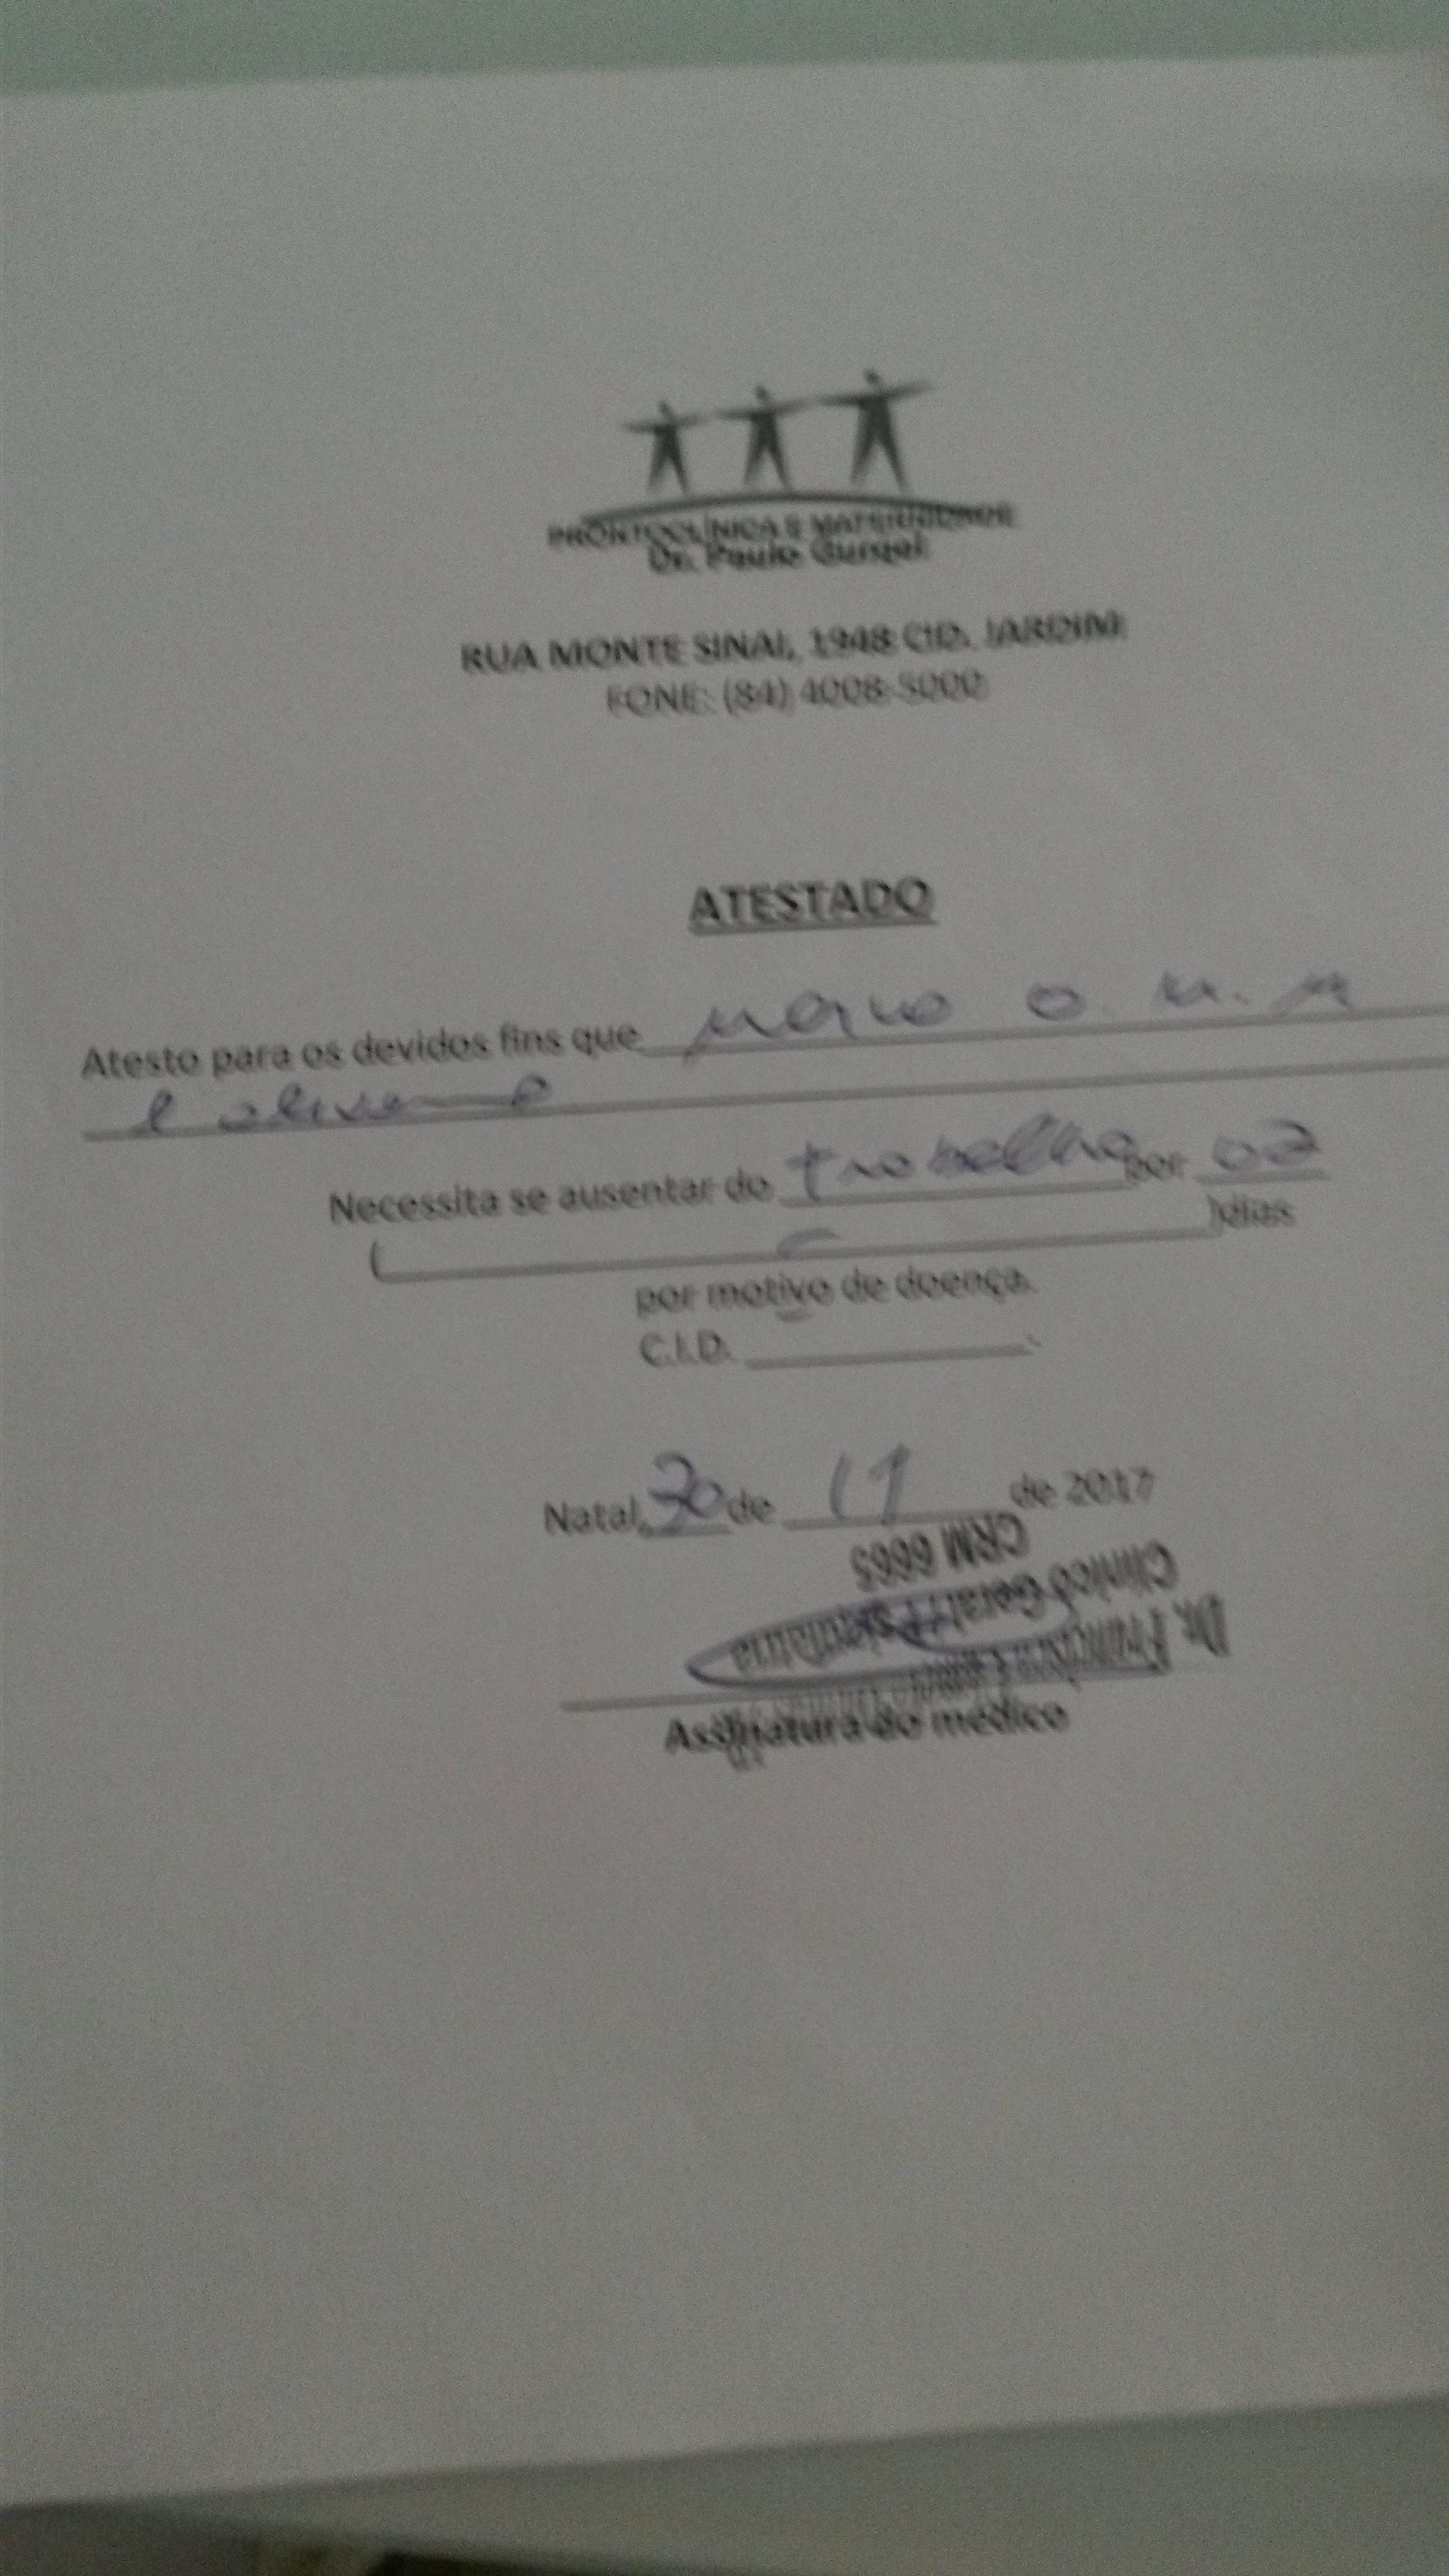 PRONTOCLÍNICA E MATERNIDADE
Dr. Paulo Gurgel
RUA MONTE SINAI, 1948 CID. JARDIM
FONE: (84) 4008-5000
ATESTADO
Atesto para os devidos fins que
Necessita se ausentar do trabalho por 02
( ) dias
por motivo de doença.
C.I.D.
Natal, 30 de 11 de 2017
CRM 6665
Clínico Geral / Psiquiatria
Dr. Francisco
Assinatura do médico